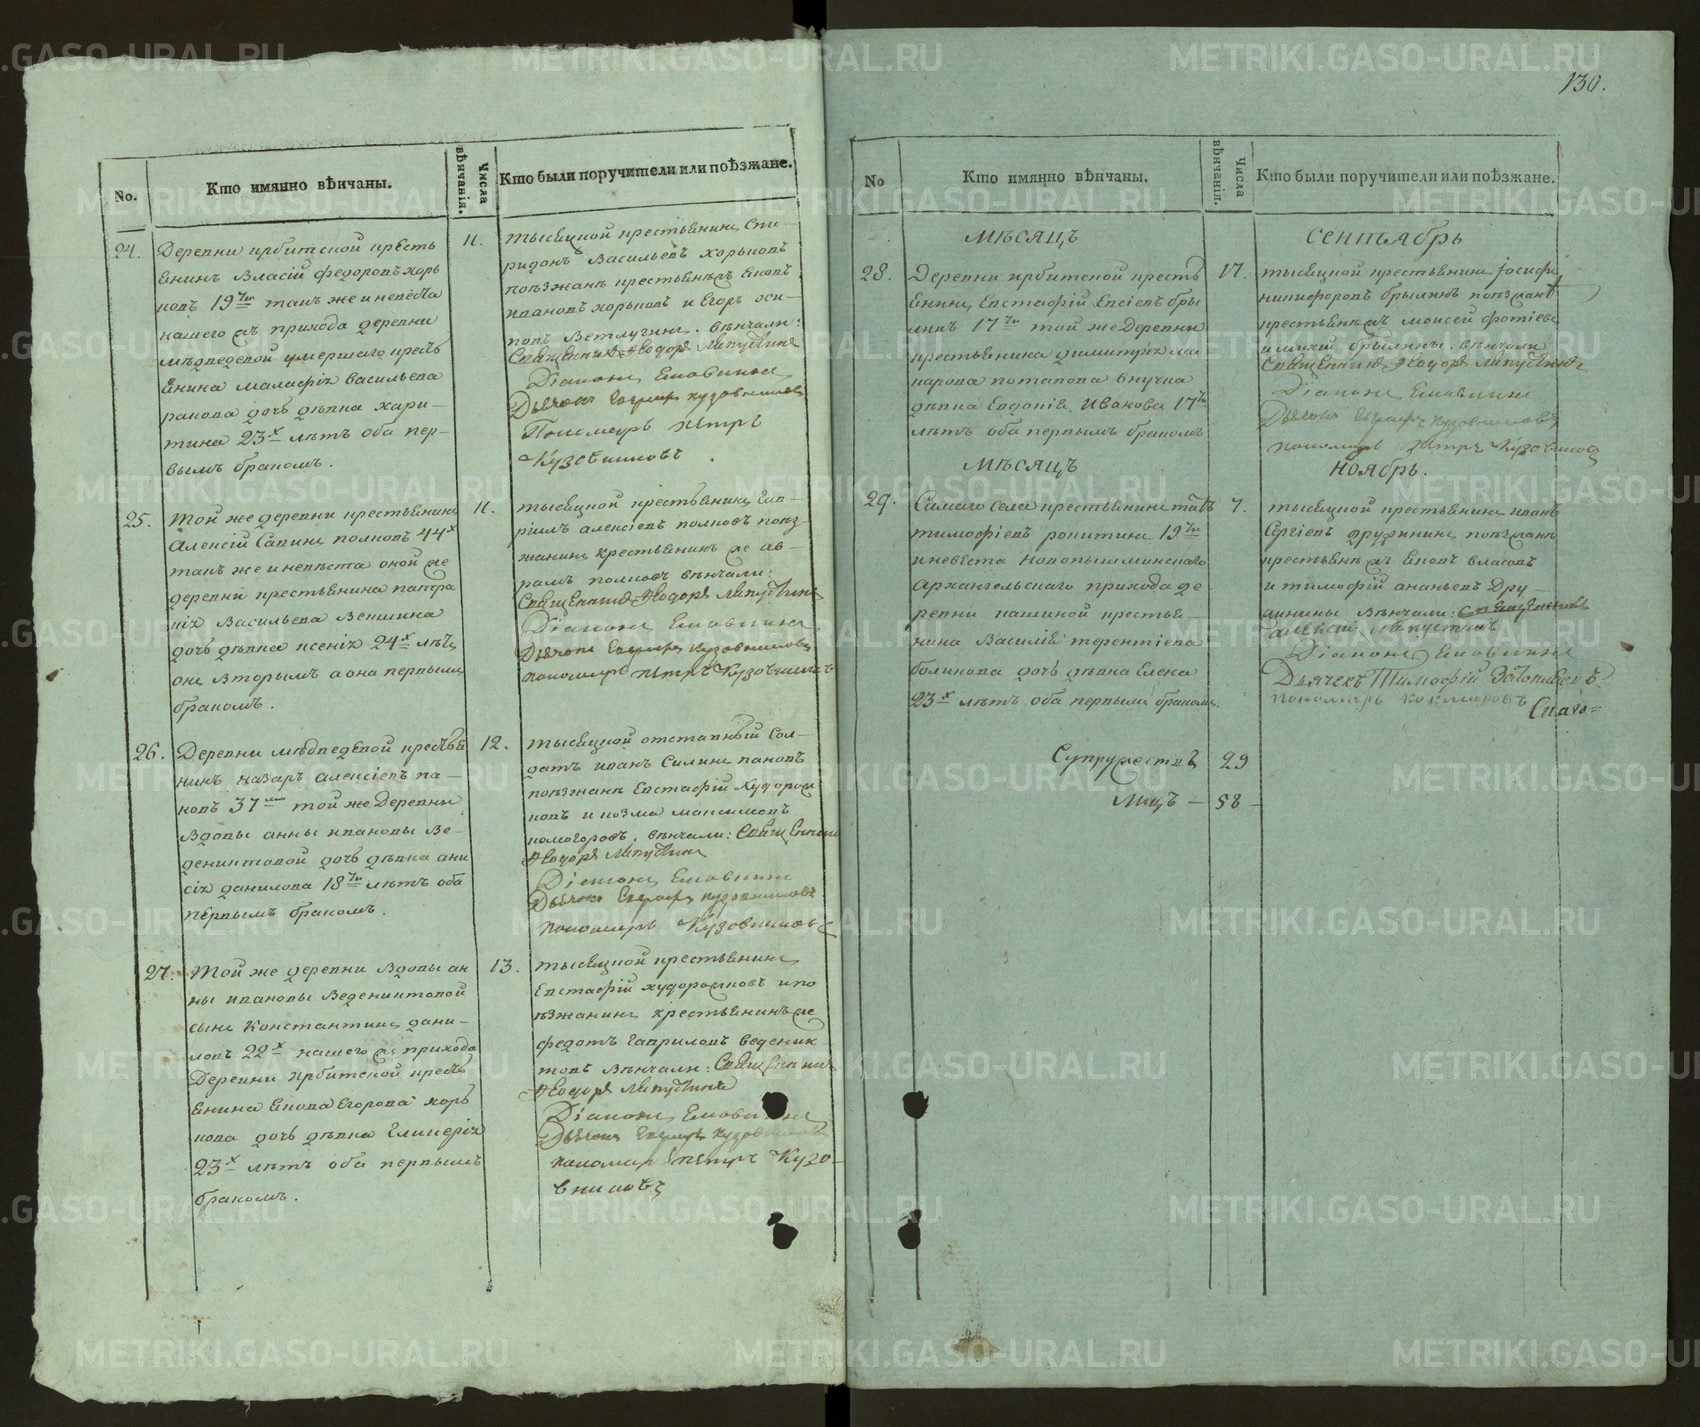 130.
No.
Кто имянно вѣнчаны.
Числа вѣнчанія.
Кто были поручители или поѣзжане.
24.
Деревни ирбитской кресть
янинъ Власій Федоровъ хорь
ковъ 19ти так же и невѣста
нашего ж прихода деревни
мѣдведевой умершаго кресть
янина малафіа васильева
ракова дочь дѣвка хари-
тина 23х лѣтъ оба пер-
вымъ бракомъ.
11.
тысяцкой крестьянинъ Спи-
ридонъ Васильевъ хорьковъ
поѣзжанѣ крестьяня Яковъ
ивановъ хорьковъ и Егоръ
Ветлугинъ. вѣнчали:
Священникъ Ѳеодоръ Лапустинъ
Діаконъ
Дьячекъ Евграфъ Кузовниковъ
Пономарь Петръ
Кузовниковъ
25.
Той же деревни крестьянинъ
Алексій Савинъ полковъ 44х
такъ же и невѣста оной же
деревни крестьянина патра
кіа Васильева Векшина
дочь дѣвка ксеніа 24х лѣтъ
онъ вторымъ а она первымъ
бракомъ.
11.
тысяцкой крестьянинъ Гав-
рилъ алексіевъ полковъ поѣз-
жанинъ крестьянинъ же ав-
рамъ полковъ вѣнчали:
Священникъ Ѳеодоръ Лапустинъ
Діаконъ
Дьячекъ Евграфъ Кузовниковъ
пономарь петръ Кузовниковъ
26.
Деревни мѣдведевой кресть
нинъ назаръ алексіевъ па-
ковъ 37ми той же деревни
вдовы анны ивановы Ве-
дениктовой дочь дѣвка ани
сіа данилова 18ти лѣтъ оба
первымъ бракомъ.
12.
тысяцкой отставный Сол-
датъ иванъ Силинъ пановъ
поѣзжанѣ Евстафій Худорож
ковъ и козма максимовъ
комогоровъ. вѣнчали: Священникъ
Ѳеодоръ Лапустинъ
Діаконъ
Дьячекъ Евграфъ кузовниковъ
пономарь Кузовниковъ
27.
Той же деревни вдовы ан
ны ивановы Ведениктовой
сынъ Константинъ дани-
ловъ 22х нашего ж прихода
Деревни ирбитской кресть
янина Якова Егорова хорь
кова дочь дѣвка Гликеріа
23х лѣтъ оба первымъ
бракомъ.
13.
тысяцкой крестьянинъ
Евстафій худорожковъ и по
ѣзжанинъ крестьянинъ же
федотъ гавриловъ ведених
товъ вѣнчали: Священникъ
Ѳеодоръ Лапустинъ
Діаконъ
Дьячекъ Евграфъ кузовниковъ
пономарь петръ Кузо-
вниковъ
No
Кто имянно вѣнчаны.
Числа вѣнчанія.
Кто были поручители или поѣзжане.
Мѣсяцъ
Сентябрь
28.
Деревни ирбитской кресть
янинъ Евстафій Евсіевъ бры
линъ 17ти той же Деревни
крестьянина димитріа ма
карова потапова внучка
дѣвка Евдокіа Иванова 17ти
лѣтъ оба первымъ бракомъ
17.
тысяцкой крестьянинъ іосифъ
никифоровъ брылинъ поѣзжанѣ
крестьянѣ ж моисей фотіевъ
брылины. вѣнчали
Священникъ Ѳеодоръ Лапустинъ
Діаконъ
Дьячекъ Евграфъ Кузовниковъ
пономарь Петръ Кузовников
Мѣсяцъ
Ноябрь.
29.
Самаго села крестьянинъ титъ
тимофіевъ рокитинъ 19ти
и невѣста новопышминскаго
Архангельскаго прихода де
ревни кашиной крестья-
нина Василіа терентіева
боликова дочь дѣвка Елена
23х лѣтъ оба первымъ бракомъ.
7.
тысяцкой крестьянинъ иванъ
Сергіевъ дружининъ поѣзжанѣ
крестьянѣ ж Яковъ власовъ
и тимофій ананьевъ Дру-
жинины вѣнчали: Священникъ
алексій Лапустинъ
Діаконъ
Дьячекъ Тимофій
пономарь
Спаго=
Супружествъ 29
Лицъ — 58 —
METRIKI.GASO-URAL.RU